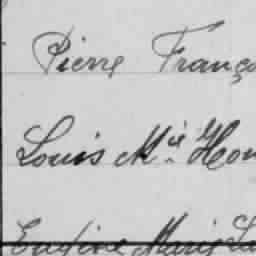 Pierre Franço
Louis M^ie Hon
Eugène Marie